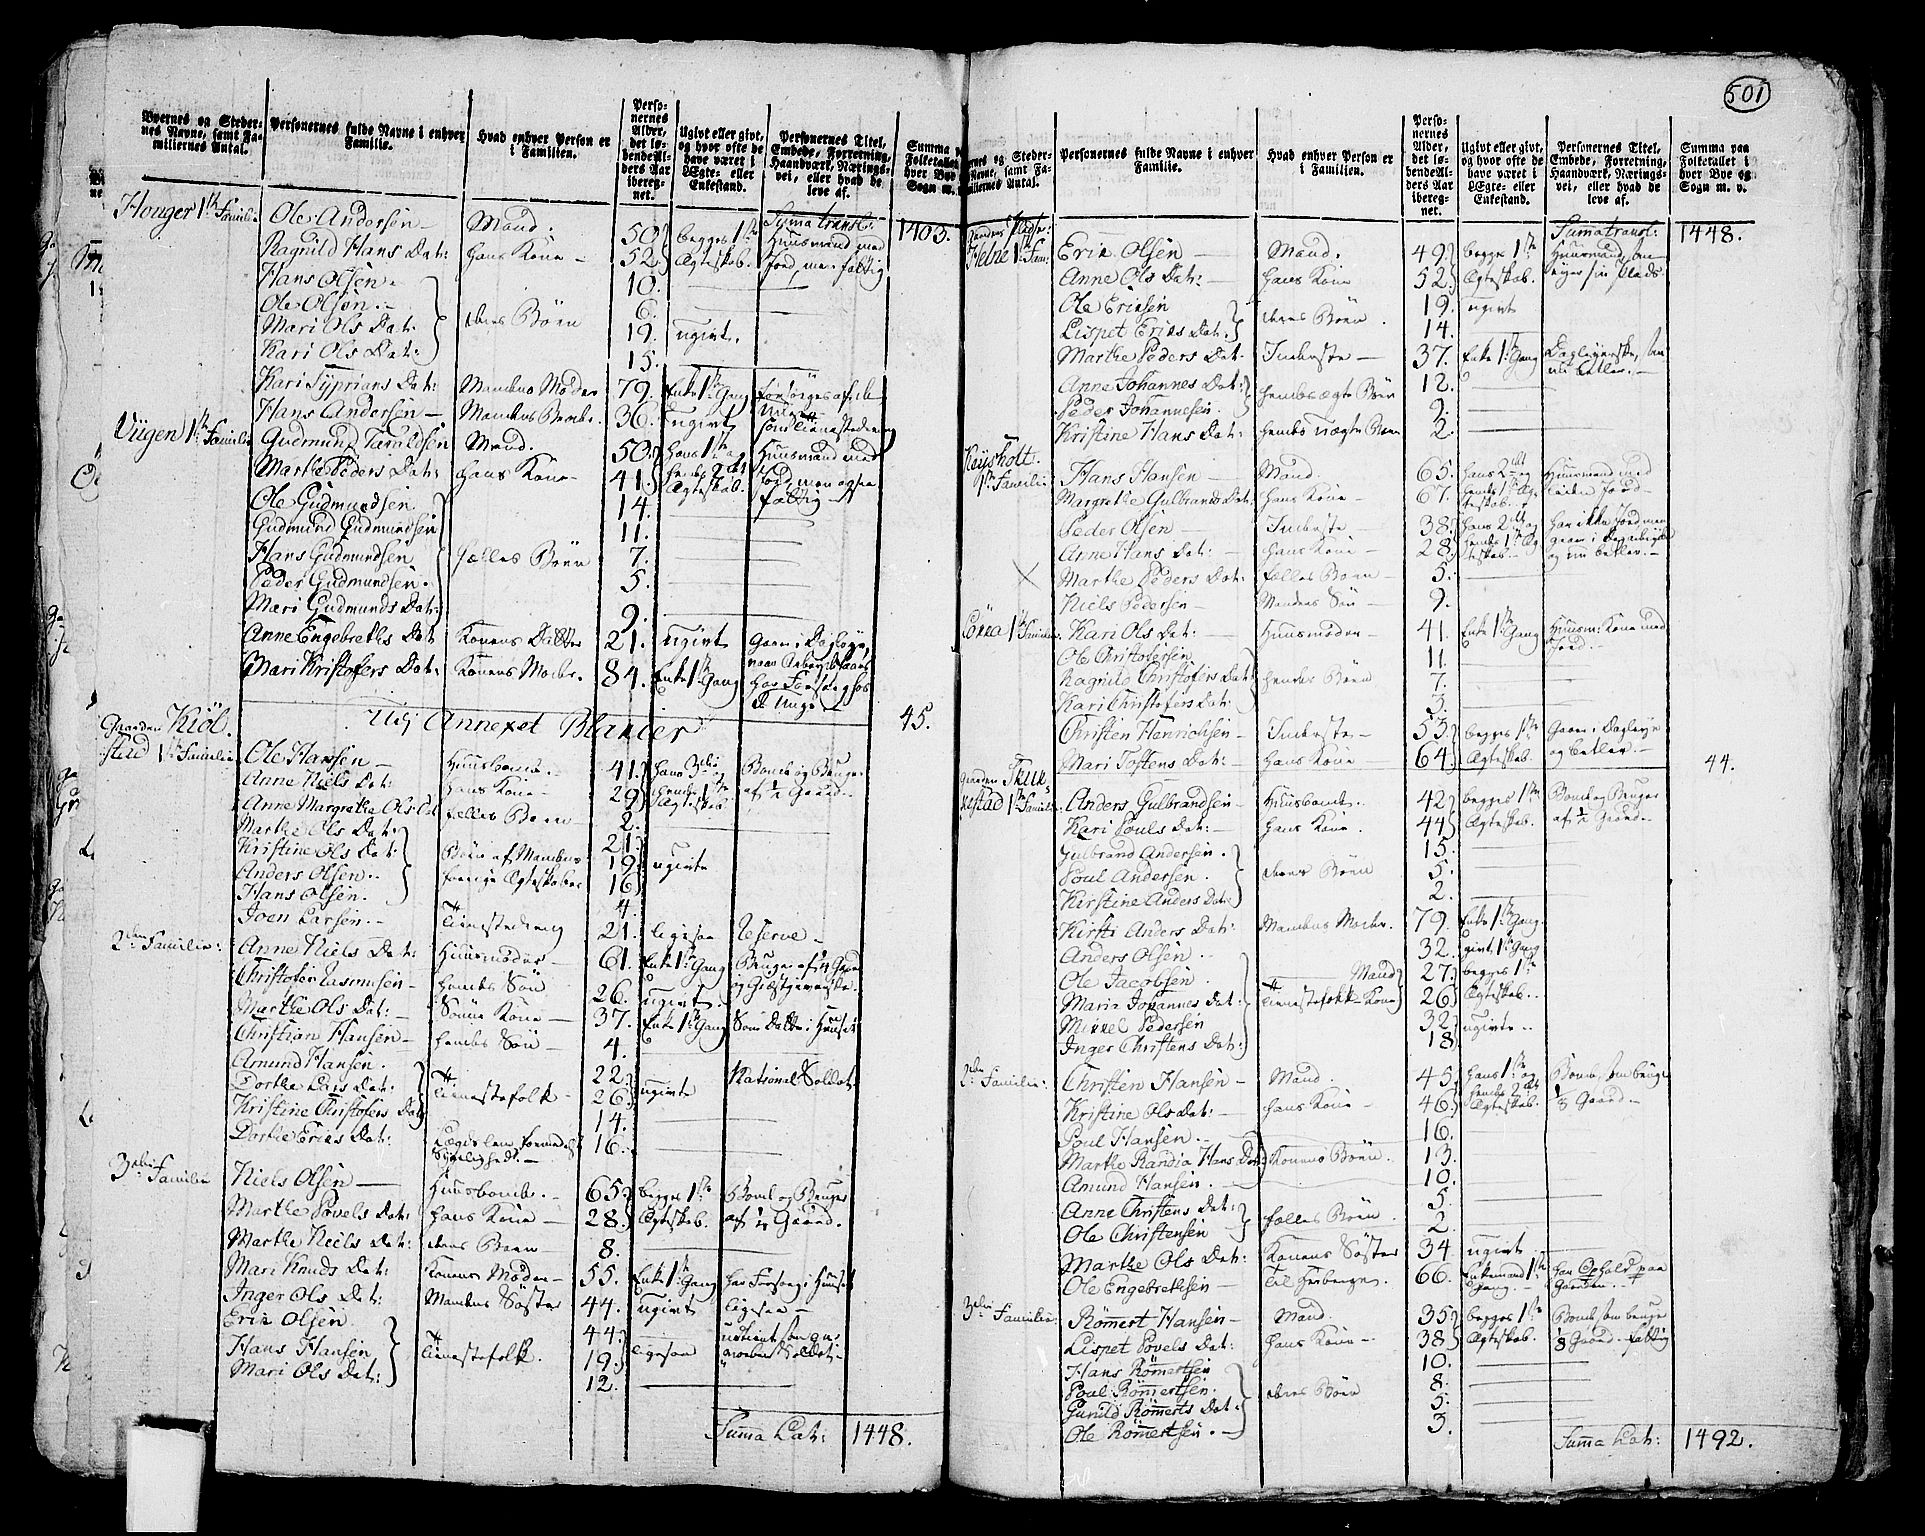 501
Byernes og Steder-
nes Navne, samt Fa-
miliernes Antal.
Personernes fulde Navne i enhver
Familie.
Hvad enhver Person er
i Familien.
Perso-
nernes
Alder,
det lø-
bende Al-
ders Aar
ibereg-
net.
Ugivt eller givt,
og hvor ofte de
have været i
Ægte- eller
Enkestand.
Personernes Titel,
Embede, Forretning,
Haandværk, Nærings-
vei, eller hvad de
leve af.
Summa
Folketallet
hver Bye
Sogn m.
Suma transl: 1403.
Houger 1th Familie Ole Andersen Mand. 50 begges 1ste Huusmand med
Ragnild Hans Dat: hans Kone 52 Ægteskab. Jord, men fattig
Hans Olsen 10.
Ole Olsen 6.
Mari Ols Dat: deres Børn 19. ugivt.
Kari Ols Dat: 15.
Kari Syprians Dat: Mandens Moder 79. Enke 1th Gang
Hans Andersen Mandens Broder 36. ugivt som tienestedreng
Viigen 1th Familie Gudmund Taraldsen Mand. 50 hans 1ste og Huusmand med
Marthe Peders Dat: hans Kone 41. hendes 2det Ægteskab. Jord men ogsaa fattig
Ole Gudmundsen 14.
Gudmund Gudmundsen 11.
Hans Gudmundsen fælles Børn 7.
Peder Gudmundsen 5.
Mari Gudmunds Dat: 9.
Anne Engebreths Dat Konens Datter 21. ugivt gaaer i Dagleye,
Mari Kristofers Dat: Konens Moder. 84. Enke 1th Gang
Udj Annexet Blakier 45.
Gaarden Kiöl
stad 1th Familie Ole Hansen Huusbonde 41. hans 3die Bonde og Bruger
Anne Niels Dat: hans Kone 29 hendes 1ste Ægteskab af ½ Gaard.
Anne Margrethe Ols D. fælles Barn 2.
Marthe Ols Dat: 21.
Kristine Ols Dat: Børn af Mandens 19. ugivte
Anders Olsen forrige Ægteskaber 16
Hans Olsen. 4.
Joen Larsen Tienestedreng 21. ligesaa Reserve
2den Familie: Anne Niels Dat: Huusmoder 61. Enke 1th Gang Bruger af ¼ Gaard
Christofer Rasmusen hendes Søn 26. ugivt og Giestgiverske
Marthe Ols Dat: Sønne Kone 37. Enke 1th Gang
Christian Hansen hendes Søn 4.
Amund Hansen. 22 National Soldat
Dorthe Lars Dat: Tienestefolk 26 ugivte
Kristine Christofers Dat 14.
Dorthe Eries Dat: 16.
3die Familie Niels Olsen Huusbonde. 65 begges 1ste Bonde og Bruger
Marthe Povels Dat: hans Kone 28. Ægteskab. af ½ Gaard.
Marthe Niels Dat: deres Barn 8.
Mari Knuds Dat: Konens Moder 55. Enke 1th Gang har Forsørg i Huuset
Inger Ols Dat: Mandens Søster 44. ugivt ligesaa
Erik Olsen. 44.
Hans Hansen Tienestefolk. 19. ligesaa
Mari Ols Dat: 12.
Suma Lat: 1448.
Byernes og Steder-
nes Navne, samt Fa-
miliernes Antal.
Personernes fulde Navne i enhver
Familie.
Hvad enhver Person er
i Familien.
Perso-
nernes
Alder,
det lø-
bende Al-
ders Aar
ibereg-
net.
Ugivt eller givt,
og hvor ofte de
have været i
Ægte- eller
Enkestand.
Personernes Titel,
Embede, Forretning,
Haandværk, Nærings-
vei, eller hvad de
leve af.
Summa paa
Folketallet i
hver Bye og
Sogn m. v.
Suma transl: 1448.
Helne 1th Fam: Erik Olsen Mand. 49. begge 1ste Huusmand,
Anne Ols Dat: hans Kone 52. Ægteskab. eyer sin Plads
Ole Eriksen 19. ugivt
Lispet Eries Dat: deres Børn 14.
Marthe Peders Dat Inderste 37. Enke 1th Gang
Anne Johannes Dat: hendes ægte Børn 12.
Peder Johannesen. 9.
Kristine Hans Dat: hendes uægte Barn 2.
Keijsholt
1th Familie Hans Hansen Mand 65. hans 2det og Huusmand med
Margrethe Gulbrands Dat: hans Kone 67. hendes 1ste Ægteskab liden Jord
Peder Olsen Inderste 38. hans 2det og har ikke Jord men
Anne Hans Dat: hans Kone 28. hendes 1ste Ægteskab og nu betler.
Marthe Peders Dat: fælles Barn 5.
Niels Pedersen Mandens Søn 9.
1th Familie Kari Ols Dat: Huusmoder 41. Enke 1th Gang Huusm: Kone med
Ole Christofersen 11. Jord.
Ragnild Christofers Dat: hendes Børn 7.
Kari Christofers Dat: 3.
Christen Henrichsen Inderste 53 begges 1ste Gaaer i Dagleye
Mari Tostens Dat: hans Kone 64. Ægteskab. og betler. 44.
Gaarden Skuk
kestad 1th Familie Anders Gulbrandsen Huusbonde. 42 begges 1ste Bonde og Bruger
Kari Pouls Dat: hans Kone. 44 Ægteskab. af ½ Gaard
Gulbrand Andersen. 15.
Poul Andersen. deres Børn 5.
Kirstine Anders Dat: 2.
Kirsti Anders Dat: Mandens Moder. 79. Enke 1th Gang.
Anders Olsen 32. givt 1th Gang
Ole Jacobsen Mand 27. begges 1ste
Maria Johannes Dat: Tienestefolk Kone 26. Ægteskab.
Mikkel Pedersen 32 ugivte
Inger Christens Dat: 18
2den Familie: Christen Hansen Mand. 45. hans 1ste og Bonde, som bruger
Kristine Ols Dat: hans Kone 46. hendes 2det Ægteskab. ⅛ Gaard
Poul Hansen. 16.
Marthe Randia Hans Dat: Konens Børn. 13.
Amund Hansen. 10.
Anne Christens Dat: 5.
Ole Christensen fælles Børn. 2.
Marthe Ols Dat: Konens Søster 34 ugivt
Ole Engebrethsen til Herberge. 66. Enkemand 1th Gang. har Ophold paa Gaarden.
3die Familie: Römert Hansen Mand. 35 begges 1ste Bonde, som bruger
Lispet Povels Dat: hans Kone 38. Ægteskab. ⅛ Gaard. fattig
Hans Römertsen 10.
Poul Römertsen. 8.
Gunild Römerts Dat: deres Børn 5.
Ole Römertsen. 3.
Suma Lat: 1492.